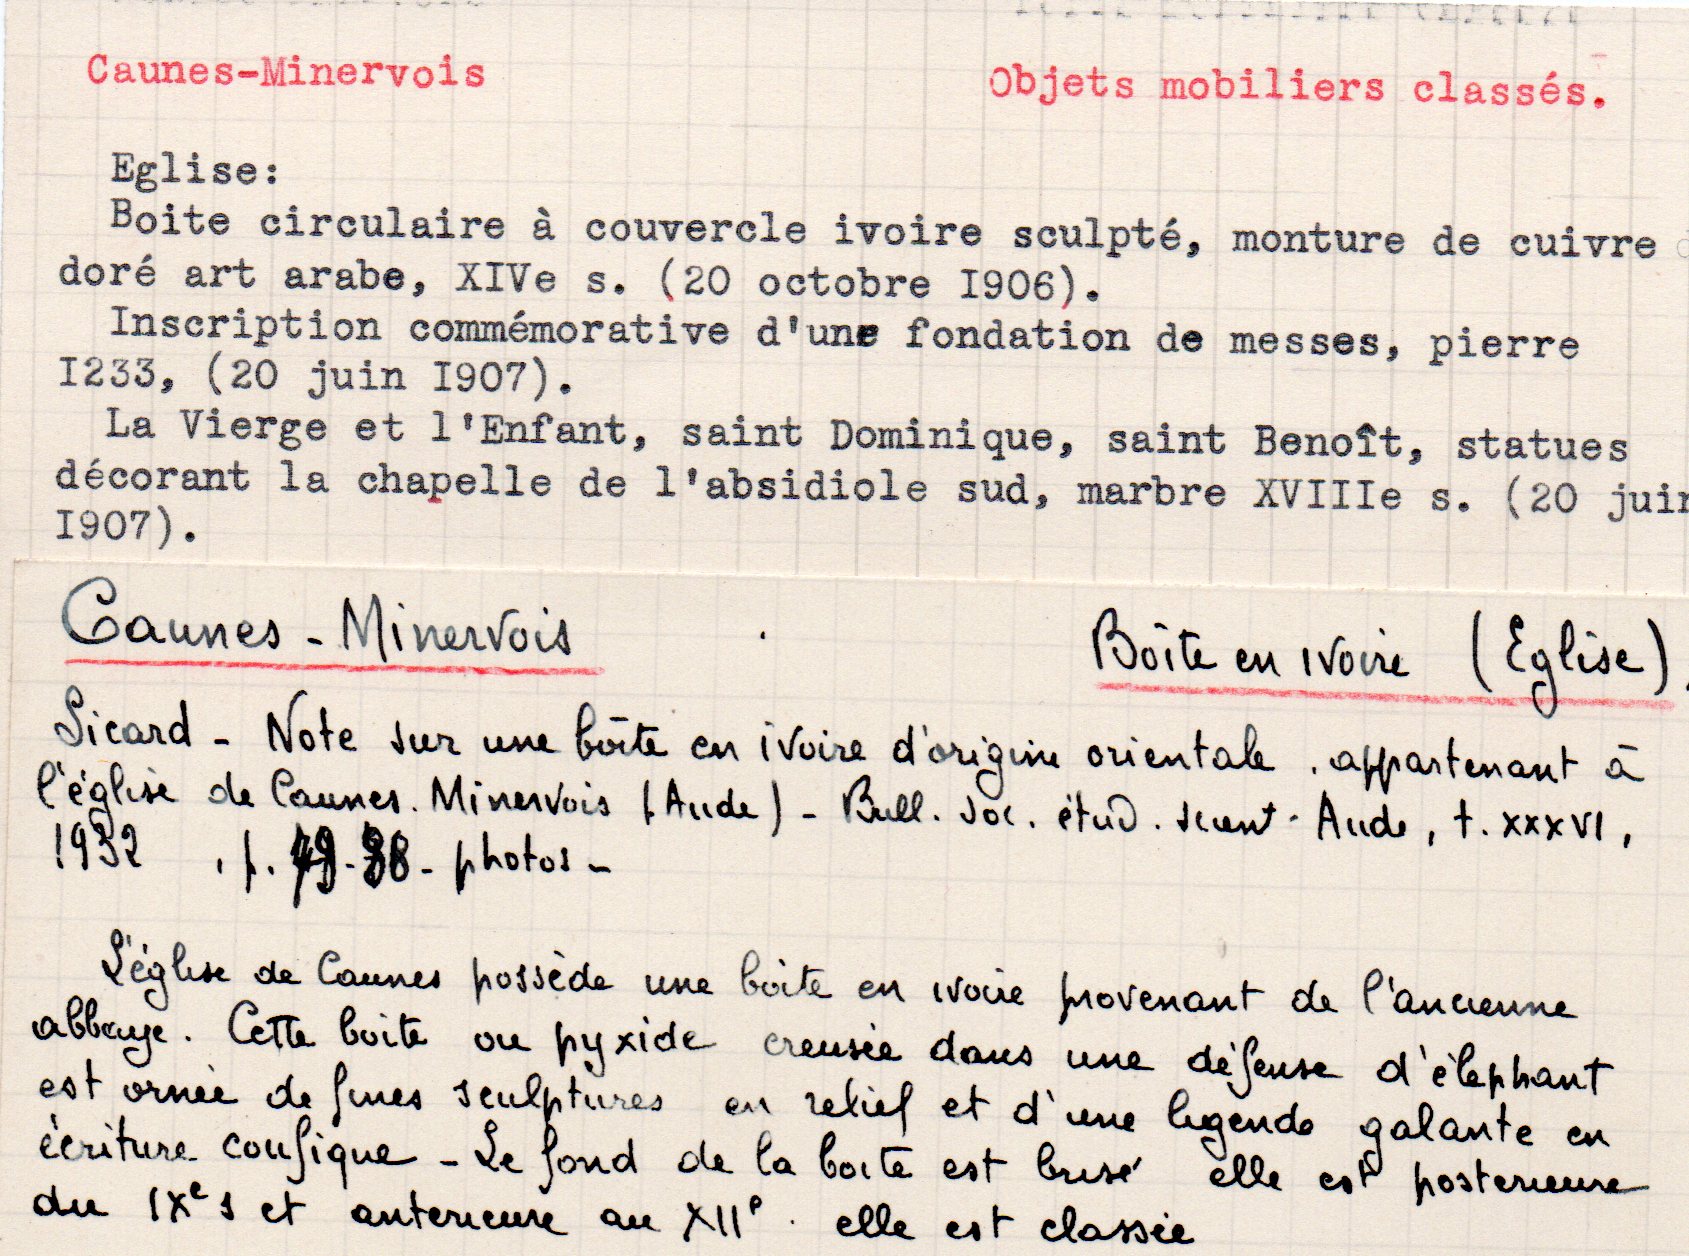 Caunes-Minervois Objets mobiliers classés.
Eglise:
Boite circulaire à couvercle ivoire sculpté, monture de cuivre
doré art arabe, XIVe s. (20 octobre I906).
Inscription commémorative d'une fondation de messes, pierre
I233, (20 juin I907).
La Vierge et l'Enfant, saint Dominique, saint Benoît, statues
décorant la chapelle de l'absidiole sud, marbre XVIIIe s. (20 juin
I907).
Caunes-Minervois Boîte en ivoire (Eglise)
Sicard - Note sur une boîte en ivoire d'origine orientale . appartenant à
l'église de Caunes. Minervois (Aude) - Bull. soc. étud. scient. Aude, t. XXXVI,
1932 , p. - photos -
L'église de Caunes possède une boite en ivoire provenant de l'ancienne
abbaye. Cette boite ou pyxide creusée dans une défense d'éléphant
est ornée de fines sculptures en relief et d'une legende galante en
écriture coufique - Le fond de la boite est brisé elle est posterieure
du IXe s et anterieure au XIIe. elle est classée